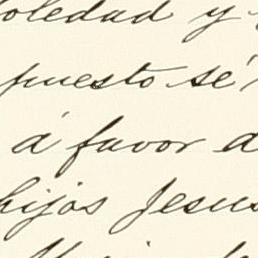 Soledad y
puesto se
á favor d
hijos Jesus